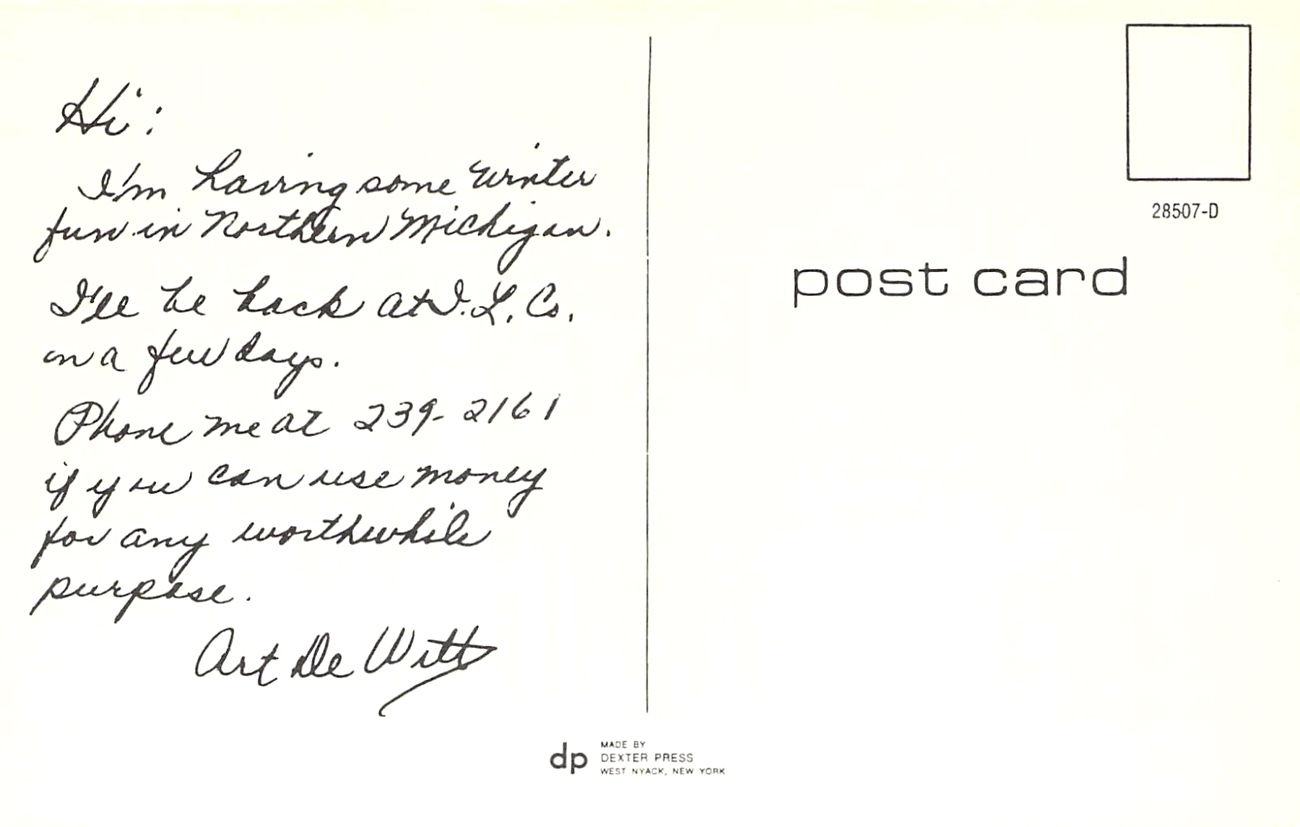 Hi:
I'm having some Winter
fun in Northern Michigan.
I'll be back at I.L. Co.
in a few days.
Phone me at 239-2161
if you can use money
for any worthwhile
purpose.
Art De Witt
28507-D
post card
dp
MADE BY
DEXTER PRESS
WEST NYACK, NEW YORK